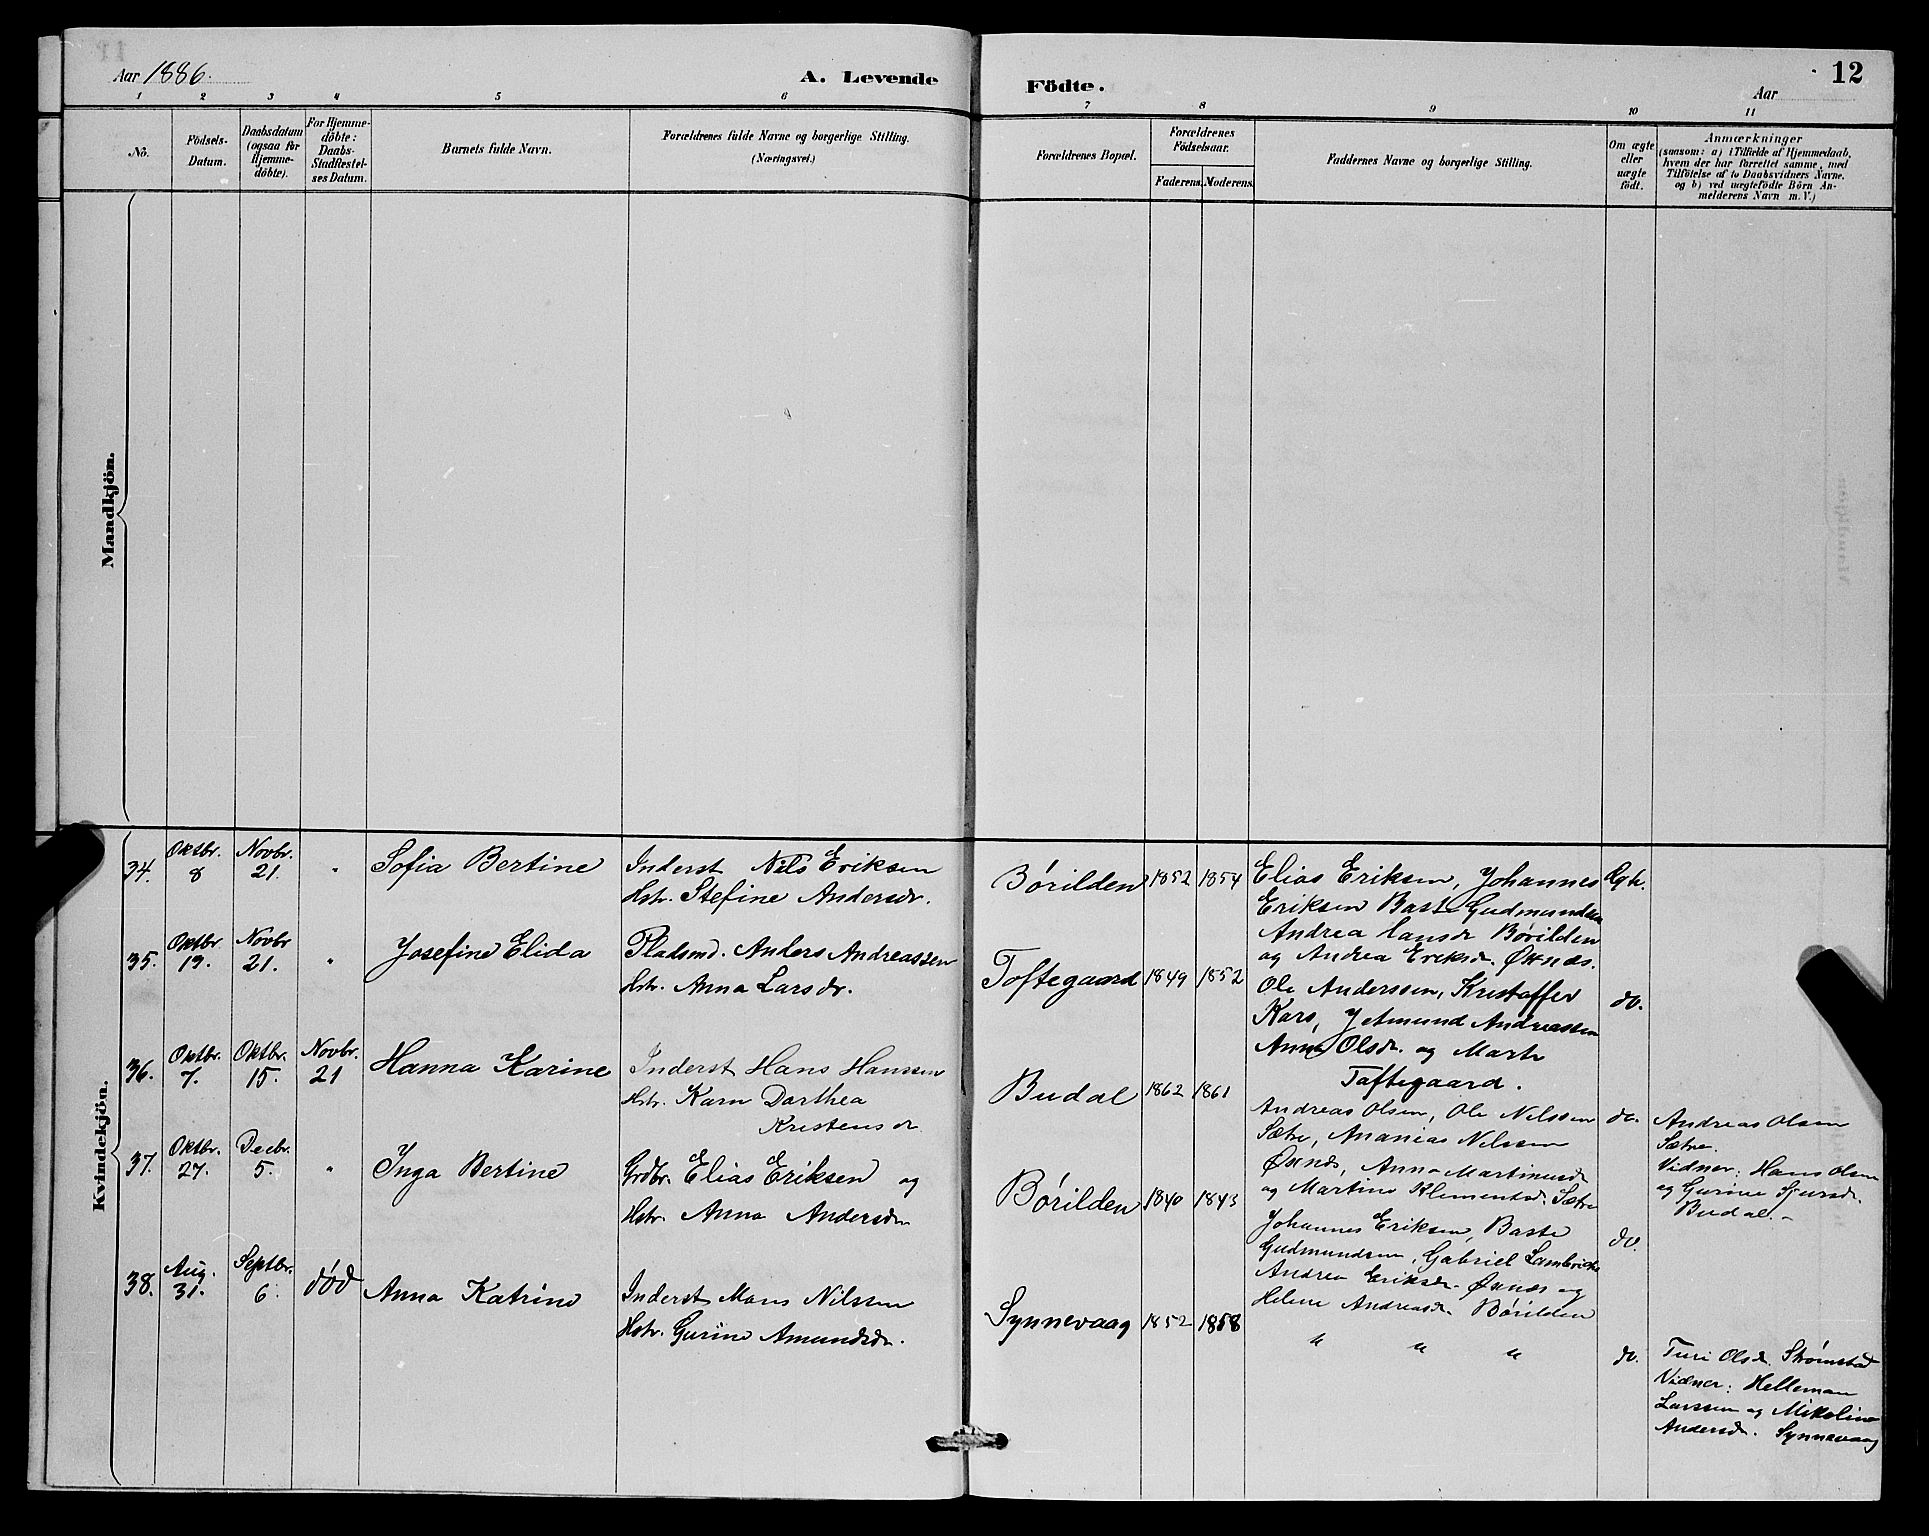 Aar 1886.
A. Levende
Födte.
Aar
12
1 2 3 4 5 6 7 8 9 10 11
No.
Födsels-
Datum.
Daabsdatum
(ogsaa for
Hjemme-
döbte).
For Hjemme-
döbte:
Daabs-
Stadfæstel-
ses Datum.
Barnets fulde Navn.
Forældrenes fulde Navne og borgerlige Stilling.
(Næringsvei.)
Forældrenes Bopæl.
Forældrenes
Födselsaar.
Faderens. Moderens.
Faddernes Navne og borgerlige Stilling.
Om ægte
eller
uægte
födt.
Anmærkninger
(saasom: a) i Tilfælde af Hjemmedaab,
hvem der har forrettet samme, med
Tilföielse af to Daabsvidners Navne,
og b) ved uægtefödte Börn An-
melderens Navn m. V.)
Mandkjön.
Kvindekjön.
34.
Oktbr.
8
Novbr.
21.
"
Sofia Bertine
Inderst Nils Eriksen
Hstr. Stefine Andersdr.
Börilden
1852
1854
Elias Eriksen, Johannes
Eriksen Baste Gudmundsen
Andrea Hansdr Börilden
og Andrea Eriksdr. Öxnæs.
Ægte.
35.
Oktbr.
19.
Novbr
21.
"
Josefine Elida
Pladsmd. Anders Andreassen
Hstr. Anna Larsdr.
Toftegaard
1849
1852
Ole Anderssen, Kristoffer
Kars, Jetmund Andreassen
Anna Olsdr. og Marte
Toftegaard.
do.
36.
Oktbr.
7.
Oktbr.
15.
Novbr.
21
Hanna Karine
Inderst Hans Hanssen
Hstr. Karn Dorthea
Kristensdr
Budal
1862
1861
Andreas Olsen, Ole Nilssen
Sætre, Ananias Nilssen
Öxnæs, Anna Martinusdr
og Martine Klementsdr. Sætre
do.
Andreas Olsen
Sætre.
Vidner: Hans Olsen
og Gurine Sjursdr.
Budal.-
37.
Oktbr.
27.
Decbr.
5.
"
Inga Bertine
Grdbr. Elias Eriksen og
Hstr. Anna Andersdr
Börilden
1840
1843
Johannes Eriksen, Baste
Gudmundsen, Gabriel Lambrigts
Andrea Eriksdr. Öxnæs og
Helene Andreasdr. Börilden
do.
38.
Aug.
31.
Septbr.
6.
död
Anna Katrine
Inderst Mons Nilssen
Hstr. Gurine Amundsdr.
Synnevaag
1852
1858
" " "
do.
Turi Olsdr. Strömstad
Vidner: Helleman
Larssen og Mikaline
Andersdr. Synnevaag